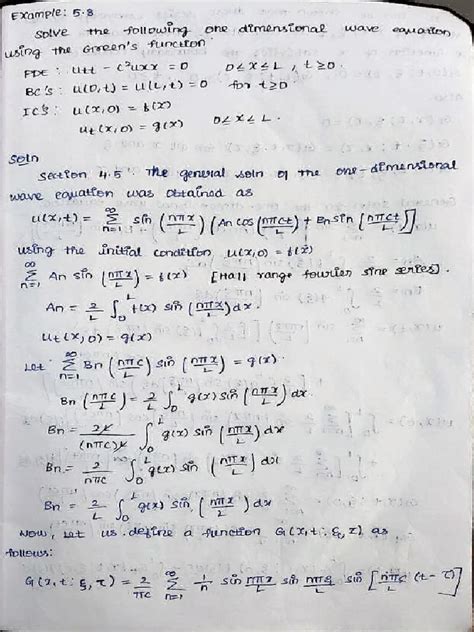 Example: 5.8
Solve the following one dimensional wave equation
using the Green's function.
PDE : utt - c²uxx = 0   0≤x≤L , t≥0.
BC's : u(0,t) = u(L,t) = 0 for t≥0
IC's : u(x,0) = f(x)
ut(x,0) = g(x)   0≤x≤L.
Soln
Section 4.5 The general soln of the one-dimensional
wave equation was obtained as
u(x,t) = ∞Σn=1 sin (nπx/L) (An cos (nπct/L) + Bn sin (nπct/L)]
using the initial condition u(x,0) = f(x)
∞Σn=1 An sin (nπx/L) = f(x) [Half range fourier sine series].
An = 2/L ∫0^L f(x) sin (nπx/L) dx.
ut(x,0) = g(x)
Let ∞Σn=1 Bn (nπc/L) sin (nπx/L) = g(x).
Bn (nπc/L) = 2/L ∫0^L g(x) sin (nπx/L) dx.
Bn = 2L/(nπc)L ∫0^L g(x) sin (nπx/L) dx
Bn = 2/nπc ∫0^L g(x) sin (nπx/L) dx
Bn = 2/L ∫0^L g(x) sin (nπx/L) dx
Now, let us define a function G(x,t; ξ, τ) as
follows:
G(x,t; ξ, τ) = 2/πc ∞Σn=1 1/n sin nπx/L sin nπξ/L sin [nπc/L (t-τ)]